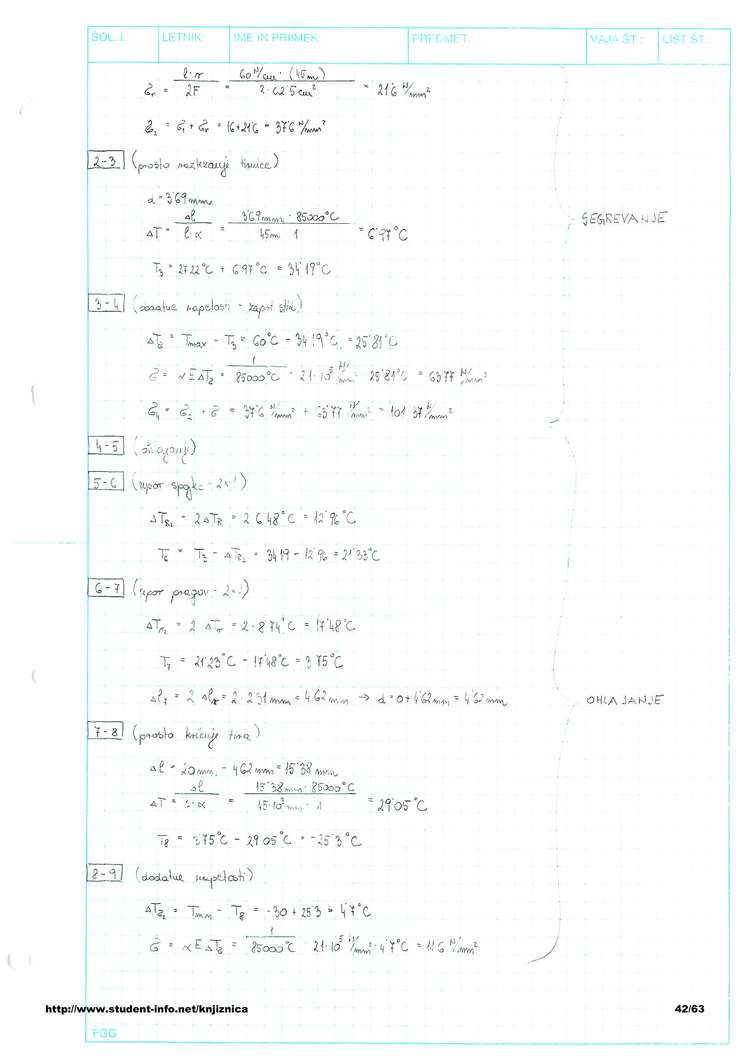 ŠOL. L. LETNIK: IME IN PRIIMEK PREDMET: VAJA ŠT.: LIST ŠT.:
σr = l·r / 2F = 60 N/cm · (45m) / 2·62'5 cm² = 21'6 N/mm²
σ2 = σ1 + σr = 16+21'6 = 37'6 N/mm²
2-3 (prosto raztezanje tirnice)
d = 3'69 mm
ΔT = Δl / l·α = 3'69mm · 85000°C / 45m · 1 = 6'97°C
T3 = 27'22°C + 6'97°C = 34'19°C
SEGREVANJE
3-4 (dodatne napetosti - zaprt stik)
ΔTz = Tmax - T3 = 60°C - 34'19°C = 25'81°C
σ = αEΔTz = 1 / 85000°C · 2'1·10⁵ N/mm² · 25'81°C = 63'77 N/mm²
σ4 = σ2 + σ = 37'6 N/mm² + 63'77 N/mm² = 101'37 N/mm²
4-5
5-6 (upor spojke - 2×!)
ΔTR2 = 2ΔTR = 2·6'48°C = 12'96°C
T6 = T3 - ΔTR2 = 34'19 - 12'96 = 21'33°C
6-7 (upor pragov - 2×!)
ΔTr2 = 2·ΔTr = 2·8'74°C = 17'48°C
T7 = 21'23°C - 17'48°C = 3'75°C
Δl7 = 2·Δlr = 2·2'31mm = 4'62mm → d = 0+4'62mm = 4'62mm
OHLAJANJE
7-8 (prosto krčenje tira)
Δl = 20mm - 4'62mm = 15'38mm
ΔT = Δl / l·α = 15'38mm · 85000°C / 45·10³mm · 1 = 29'05°C
T8 = 3'75°C - 29'05°C = -25'3°C
8-9 (dodatne napetosti)
ΔTz2 = Tmin - T8 = -30 + 25'3 = 4'7°C
σ = αEΔTz = 1 / 85000°C · 2'1·10⁵ N/mm² · 4'7°C = 11'6 N/mm²
http://www.student-info.net/knjiznica 42/63
FGG